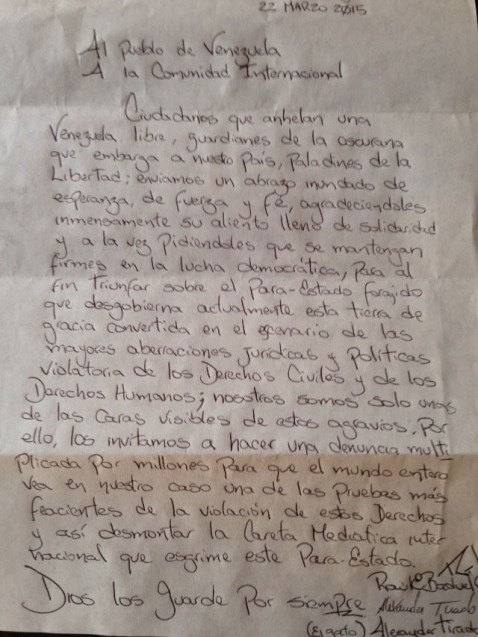 22 MARZO 2015
Al Pueblo de Venezuela
A la Comunidad Internacional
Ciudadanos que anhelan una
Venezuela libre, guardianes de la oscurana
que embarga a nuestro País, Paladines de la
Libertad; enviamos un abrazo inundado de
esperanza, de fuerza y fé, agradeciendoles
inmensamente su aliento lleno de solidaridad
y a la vez Pidiendoles que se mantengan
firmes en la lucha democrática, Para al
fin triunfar sobre el Para-Estado forajido
que desgobierna actualmente esta tierra de
gracia convertida en el esenario de las
mayores aberraciones Jurídicas y Políticas
violatoria de los Derechos Civiles y de los
Derechos Humanos; nosotros somos solo unas
de las Caras visibles de estos agravios. Por
ello, los invitamos a hacer una denuncia multi
Plicada Por millones Para que el mundo entero
vea en nuestro caso una de las Pruebas más
feacientes de la violación de estos Derechos
y así desmontar la Careta Mediatica inter
nacional que esgrime este Para-Estado.
Dios los guarde por siempre
Raúl Tirado
(El gato) Alexander Tirado